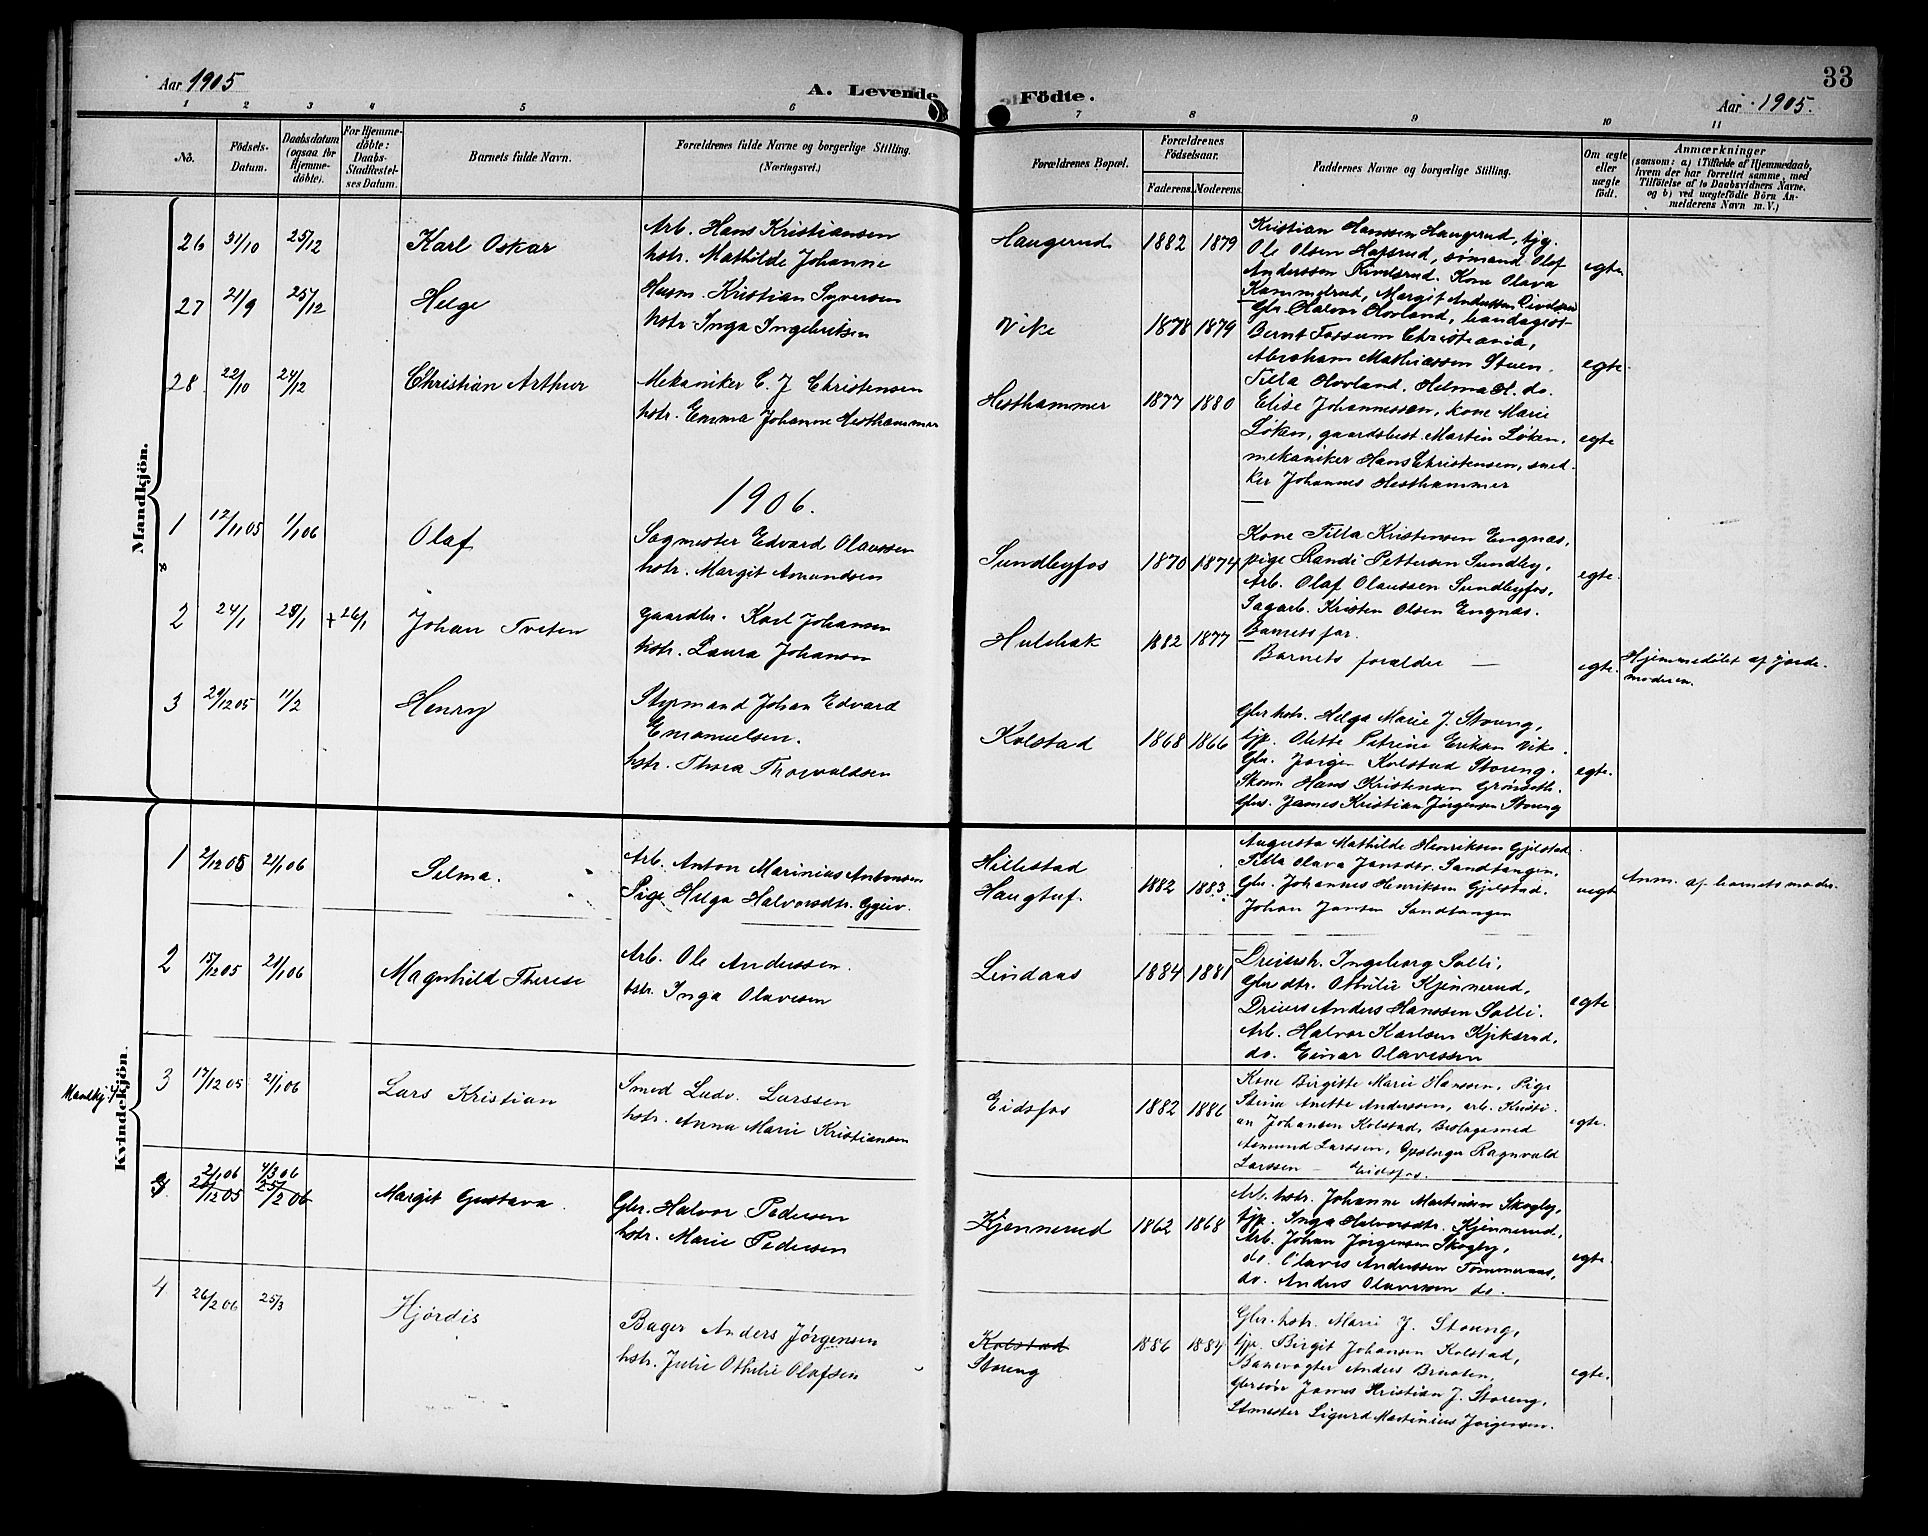 Aar 1905
A. Levende Födte.
Aar 1905.
33
1 2 3 4 5 6 7 8 9 10 11
No.
Födsels-
Datum.
Daabsdatum
(ogsaa for
Hjemme-
döbte).
For Hjemme-
döbte:
Daabs-
Stadfæstel-
ses Datum.
Barnets fulde Navn.
Forældrenes fulde Navne og borgerlige Stilling.
(Næringsvei.)
Forældrenes Bopæl.
Forældrenes
Födselsaar.
Faderens. Moderens.
Faddernes Navne og borgerlige Stilling.
Om ægte
eller
uægte
födt.
Anmærkninger
(saasom: a) (Tilfælde af Hjemmedaab,
hvem der har forrettet samme, med
Tilföielse af to Daabsvidners Navne.
og b) ved uægtefödte Börn An-
melderens Navn m. V.)
Mandkjön.
26 31/10 25/12 Karl Oskar
Arb. Hans Kristiansen
hstr. Mathilde Johanne
Haugerud 1882 1879
Kristian Hansen Haugerud, tjg.
Ole Olsen Hapsrud, sømand Olaf
Anderssen . Kone Olava
Kammelrud, Margit Anderssen
egte
27 21/9 25/12 Helge
Husm. Kristian Syversen
hstr. Inga Ingebriksen
Vike 1878 1879
Gbr. Halvor Hovland, bandagist
Bernt Fossum Christiania,
Abraham Mathiassen Stuen.
Tilla Hovland. Helma H. do.
egte.
28 22/10 24/12 Christian Arthur
Mekaniker C. J Christensen
hstr. Emma Johanne Hesthammer
Hesthammer 1877 1880
Elise Johannessen, kone Marie
Løken, gaardsbest. Martin Løken.
mekaniker Hans Christensen, sned-
ker Johannes Hesthammer
egte
1906.
1 12/11 05 1/1 06 Olaf
Sagmester Edvard Olaussen
hstr. Margit Amundsen
Sundbyfos 1870 1874
Kone Tilla Kristensen Engnæs,
pige Randi Pettersen Sundby,
Arb. Olaf Olaussen Sundbyfos,
Sagarb. Kristen Olsen Engnæs.
Barnets far.
egte.
2 24/1 28/1 + 26/1 Johan Tveten
Gaardbr. Karl Johansen
hstr. Laura Johansen
Hulebak 1882 1877
Barnets foreldre —
egte.
Hjemmedøbt af Jorde-
moderen.
3 29/12 05 11/2 Henry
Styrmand Johan Edvard
Emanuelsen.
hstr. Thora Thorvaldsen
Kolstad 1868 1866
Gbr hstr. Helga Marie J. Storeng,
tjp. Olette Petrine Eriksen Vike.
Gbr. Jørgen Kolstad Storeng.
Skom. Hans Kristensen Grønseth.
Gbrs. James Kristian Jørgensen Storeng
egte.
Kvindekjön.
1 2/12 05 21/1 06 Selma.
Arb. Anton Marinius Antonsen
Pige Helga Halvorsdtr.
Hillestad
Haugtuf. 1882 1883
Augusta Mathilde Henriksen Gjelstad
Tilla Olava Jansdtr. Sandtangen,
Gbr. Johannes Henriksen Gjelstad.
Johan Jansen Sandtangen
uegt
Anm. af barnets moder.
2 15/12 05 21/1 06 Magnhild Therese
Arb. Ole Anderssen.
hstr. Inga Olavesen
Lindaas 1884 1881
Dreiersk. Ingeborg Solli,
Gbrsdtr. Othilie Kjennerud,
Dreiers Anders Hanssen Solli.
Arb. Halvor Karlsen Kjiksrud,
do. Einar Olavessen
egte
Mandkj.
3 17/12 05 21/1 06 Lars Kristian
Smed Ludv. Larssen
hstr. Anna Marie Kristiansen
Eidsfos 1882 1886
Kone Birgitte Marie Hanssen, Pige
Stina Anette Anderssen, arb. Kristi-
an Johansen Kolstad, Beslagsmed
Asmund Larssen, Ragnvald
Larssen — Eidsfos.
egte.
3. 2/1 06 27/12 05 4/3 06 25/2 06 Margit Gustava.
Gbr. Halvor Pedersen
hstr. Marie Pedersen
Kjennerud 1862 1868
Arb. hstr. Johanne Martinsen Skogly,
tjp. Inga Halvorsdtr. Kjennerud,
Arb. Johan Jørgensen Skogly,
do. Olaves Anderssen Tømmeraas,
do. Anders Olavessen do.
egte.
4 26/2 06 25/3 Hjördis
Bager Anders Jørgensen
hstr. Julie Othilie Olafsen
Kolstad
Storeng 1886 1884
Gbr. hstr. Marie J. Storeng,
tjp. Birgit Johansen Kolstad,
Banevogter Anders Braaten,
Gbrsøn James Kristian J. Storeng,
Stmester Sigurd Martinius Jørgensen.
egte.